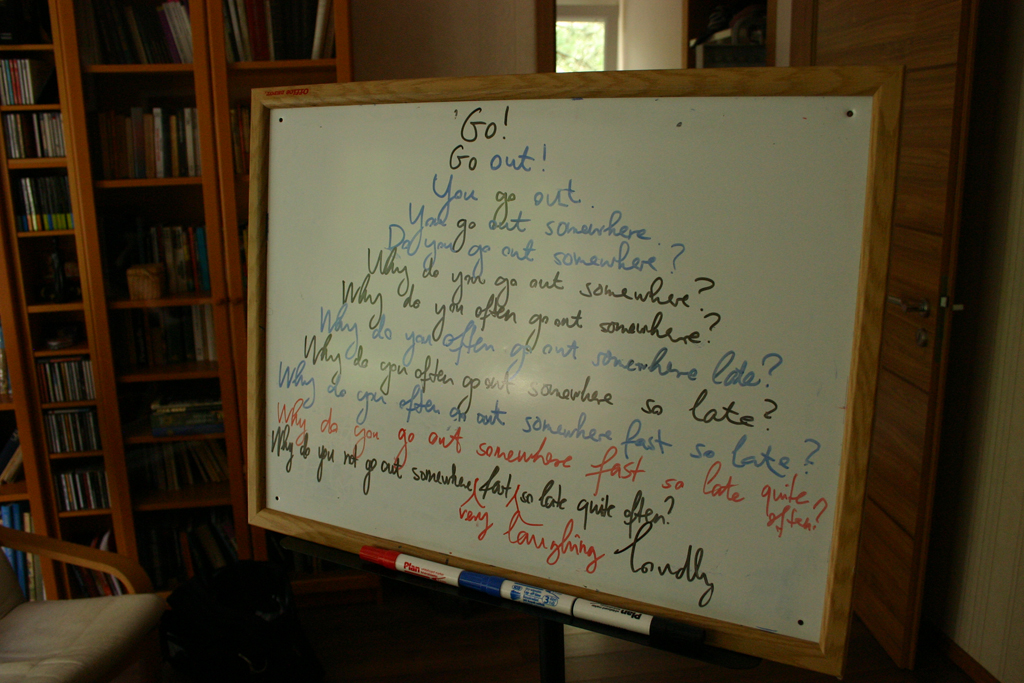 Go!
Go out!
You go out.
You go out somewhere.
Do you go out somewhere?
Why do you go out somewhere?
Why do you often go out somewhere?
Why do you often go out somewhere late?
Why do you often go out somewhere so late?
Why do you often go out somewhere fast so late?
Why do you go out somewhere fast so late quite often?
Why do you not go out somewhere fast so late quite often?
very laughing loudly
Plan
Plan